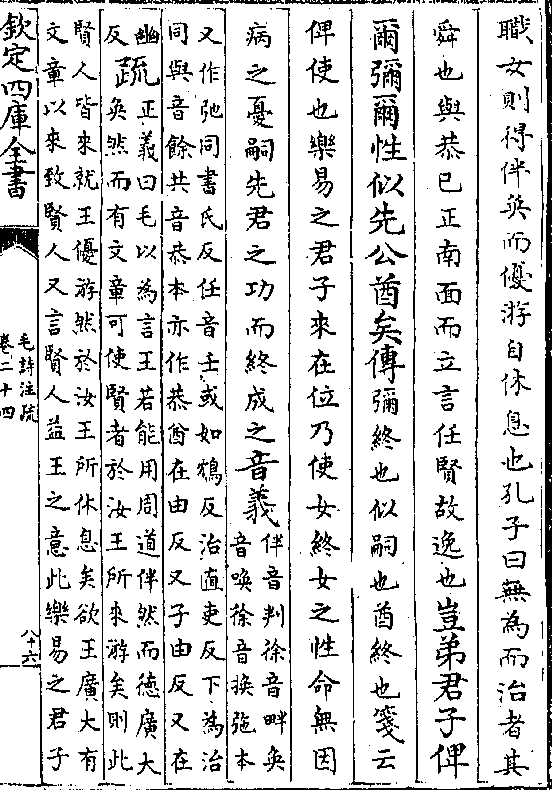 職女則得伴奂而優游自休息也孔子曰無為而治者其
舜也與恭已正南面而立言任賢故逸也豈弟君子俾
爾彌爾性似先公酋矣傳彌終也似嗣也酋終也箋云
俾使也樂易之君子來在位乃使女終女之性命無困
病之憂嗣先君之功而終成之音義伴音判徐音畔奂
音喚徐音換弛本
又作弛同書氏反任音壬或如鴆反治直吏反下為治
同與音餘共音恭本亦作恭酋在由反又子由反又在
幽反疏正義曰毛以為言王若能用周道伴然而德廣大
奂然而有文章可使賢者於汝王所來游矣則此
賢人皆來就王優游然於汝王所休息矣欲王廣大有
文章以來致賢人又言賢人益王之意此樂易之君子
欽定四庫全書
毛詩注疏
卷二十四
八十六